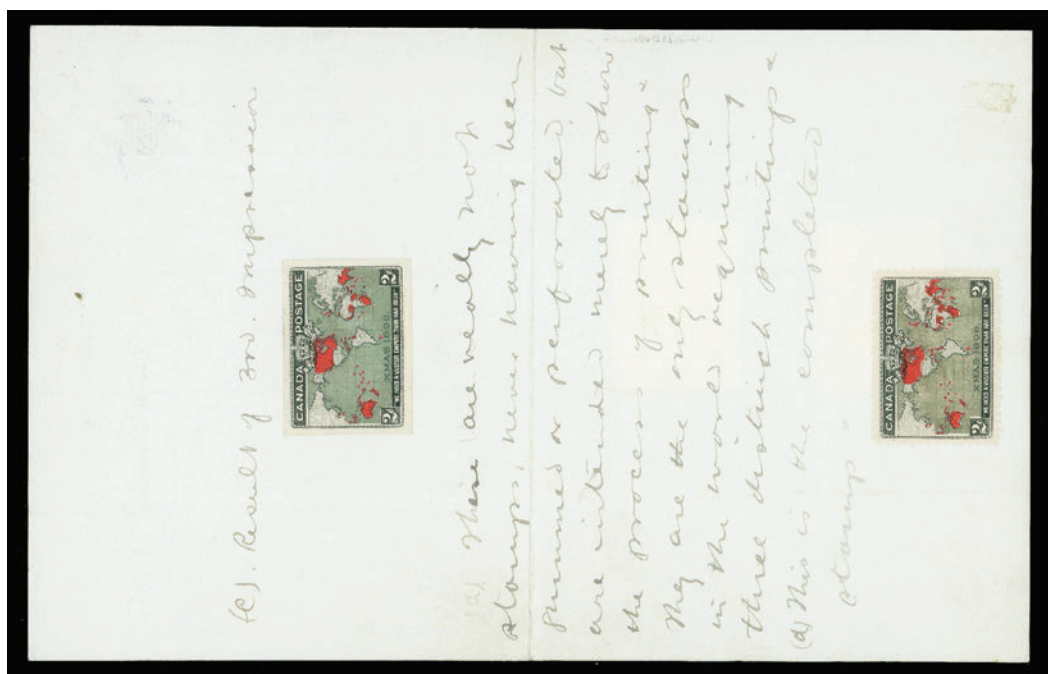 (C). Result of 3rd. Impression
CANADA POSTAGE
XMAS 1898
"WE HOLD A VASTER EMPIRE THAN HAS BEEN"
2¢ 2¢
(2) These are really not
stamps, never having been
gummed or perforated, but
are intended merely to show
the process of printing.
They are the only stamps
in the world requiring
three distinct printings
(d) This is the completed
stamp.
CANADA POSTAGE
XMAS 1898
"WE HOLD A VASTER EMPIRE THAN HAS BEEN"
2¢ 2¢